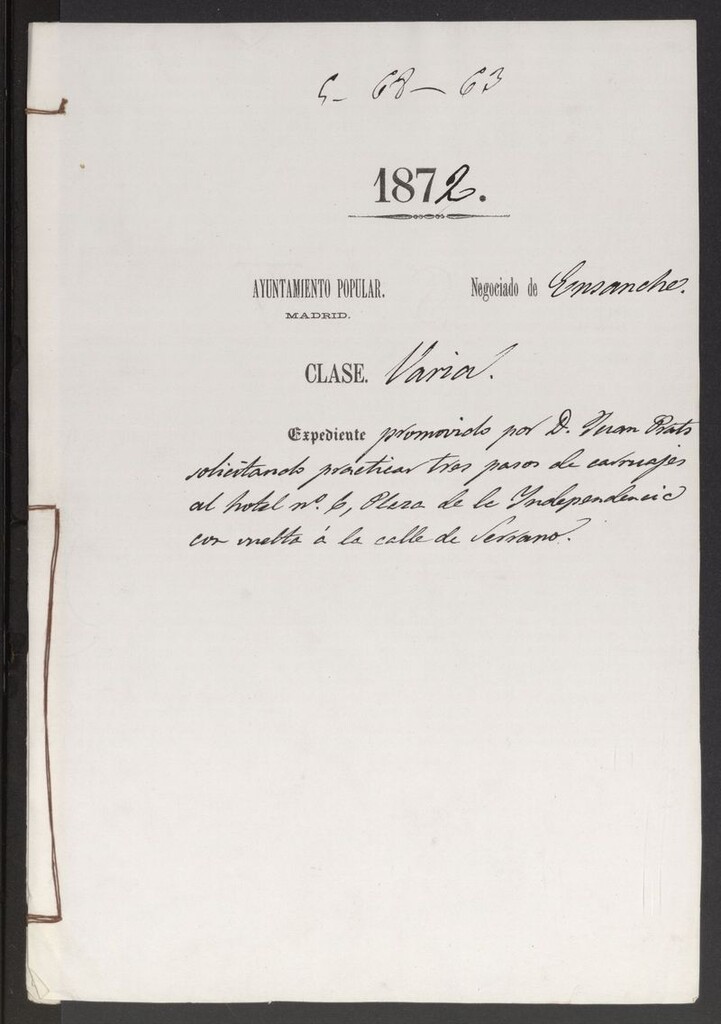 5-68-63
1872.
AYUNTAMIENTO POPULAR. Negociado de Ensanche.
MADRID.
CLASE. Varia.
Expediente promovido por D. Juan Prats
solicitando practicar tres pasos de carruajes
al hotel nº. 6, Plaza de la Independencia
con vuelta á la calle de Serrano.